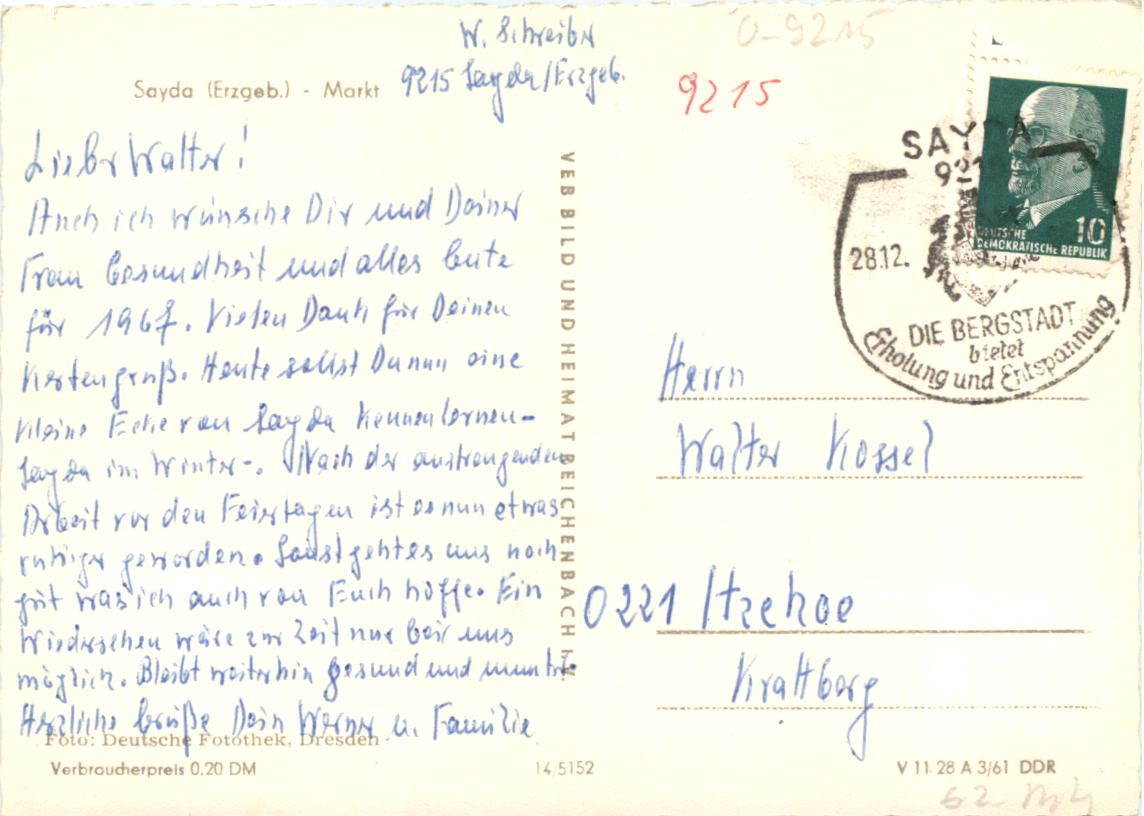 W. Schreiber
9215 Sayda/Erzgeb.
Sayda (Erzgeb.) - Markt
0-9215
9215
Lieber Walter!
Auch ich wünsche Dir und Deiner
Frau Gesundheit und alles Gute
für 1967. Vielen Dank für Deinen
Kartengruß. Heute sollst Du nun eine
kleine Ecke von Sayda kennenlernen -
Sayda im Winter -. Nach der anstrengenden
Arbeit vor den Feiertagen ist es nun etwas
ruhiger geworden. Sonst geht es uns noch
gut was ich auch von Euch hoffe. Ein
Wiedersehen wäre zur Zeit nur bei uns
möglich. Bleibt weiterhin gesund und munter.
Herzliche Grüße Dein Werner u. Familie
Foto: Deutsche Fotothek, Dresden
Verbraucherpreis 0.20 DM
14/5152
VEB BILD UND HEIMAT REICHENBACH i. V.
DEUTSCHE
DEMOKRATISCHE REPUBLIK
10
SAYDA
921
28.12.
DIE BERGSTADT
bietet
Erholung und Entspannung!
Herrn
Walter Kossel
0221 Itzehoe
Krattberg
V 11 28 A 3/61 DDR